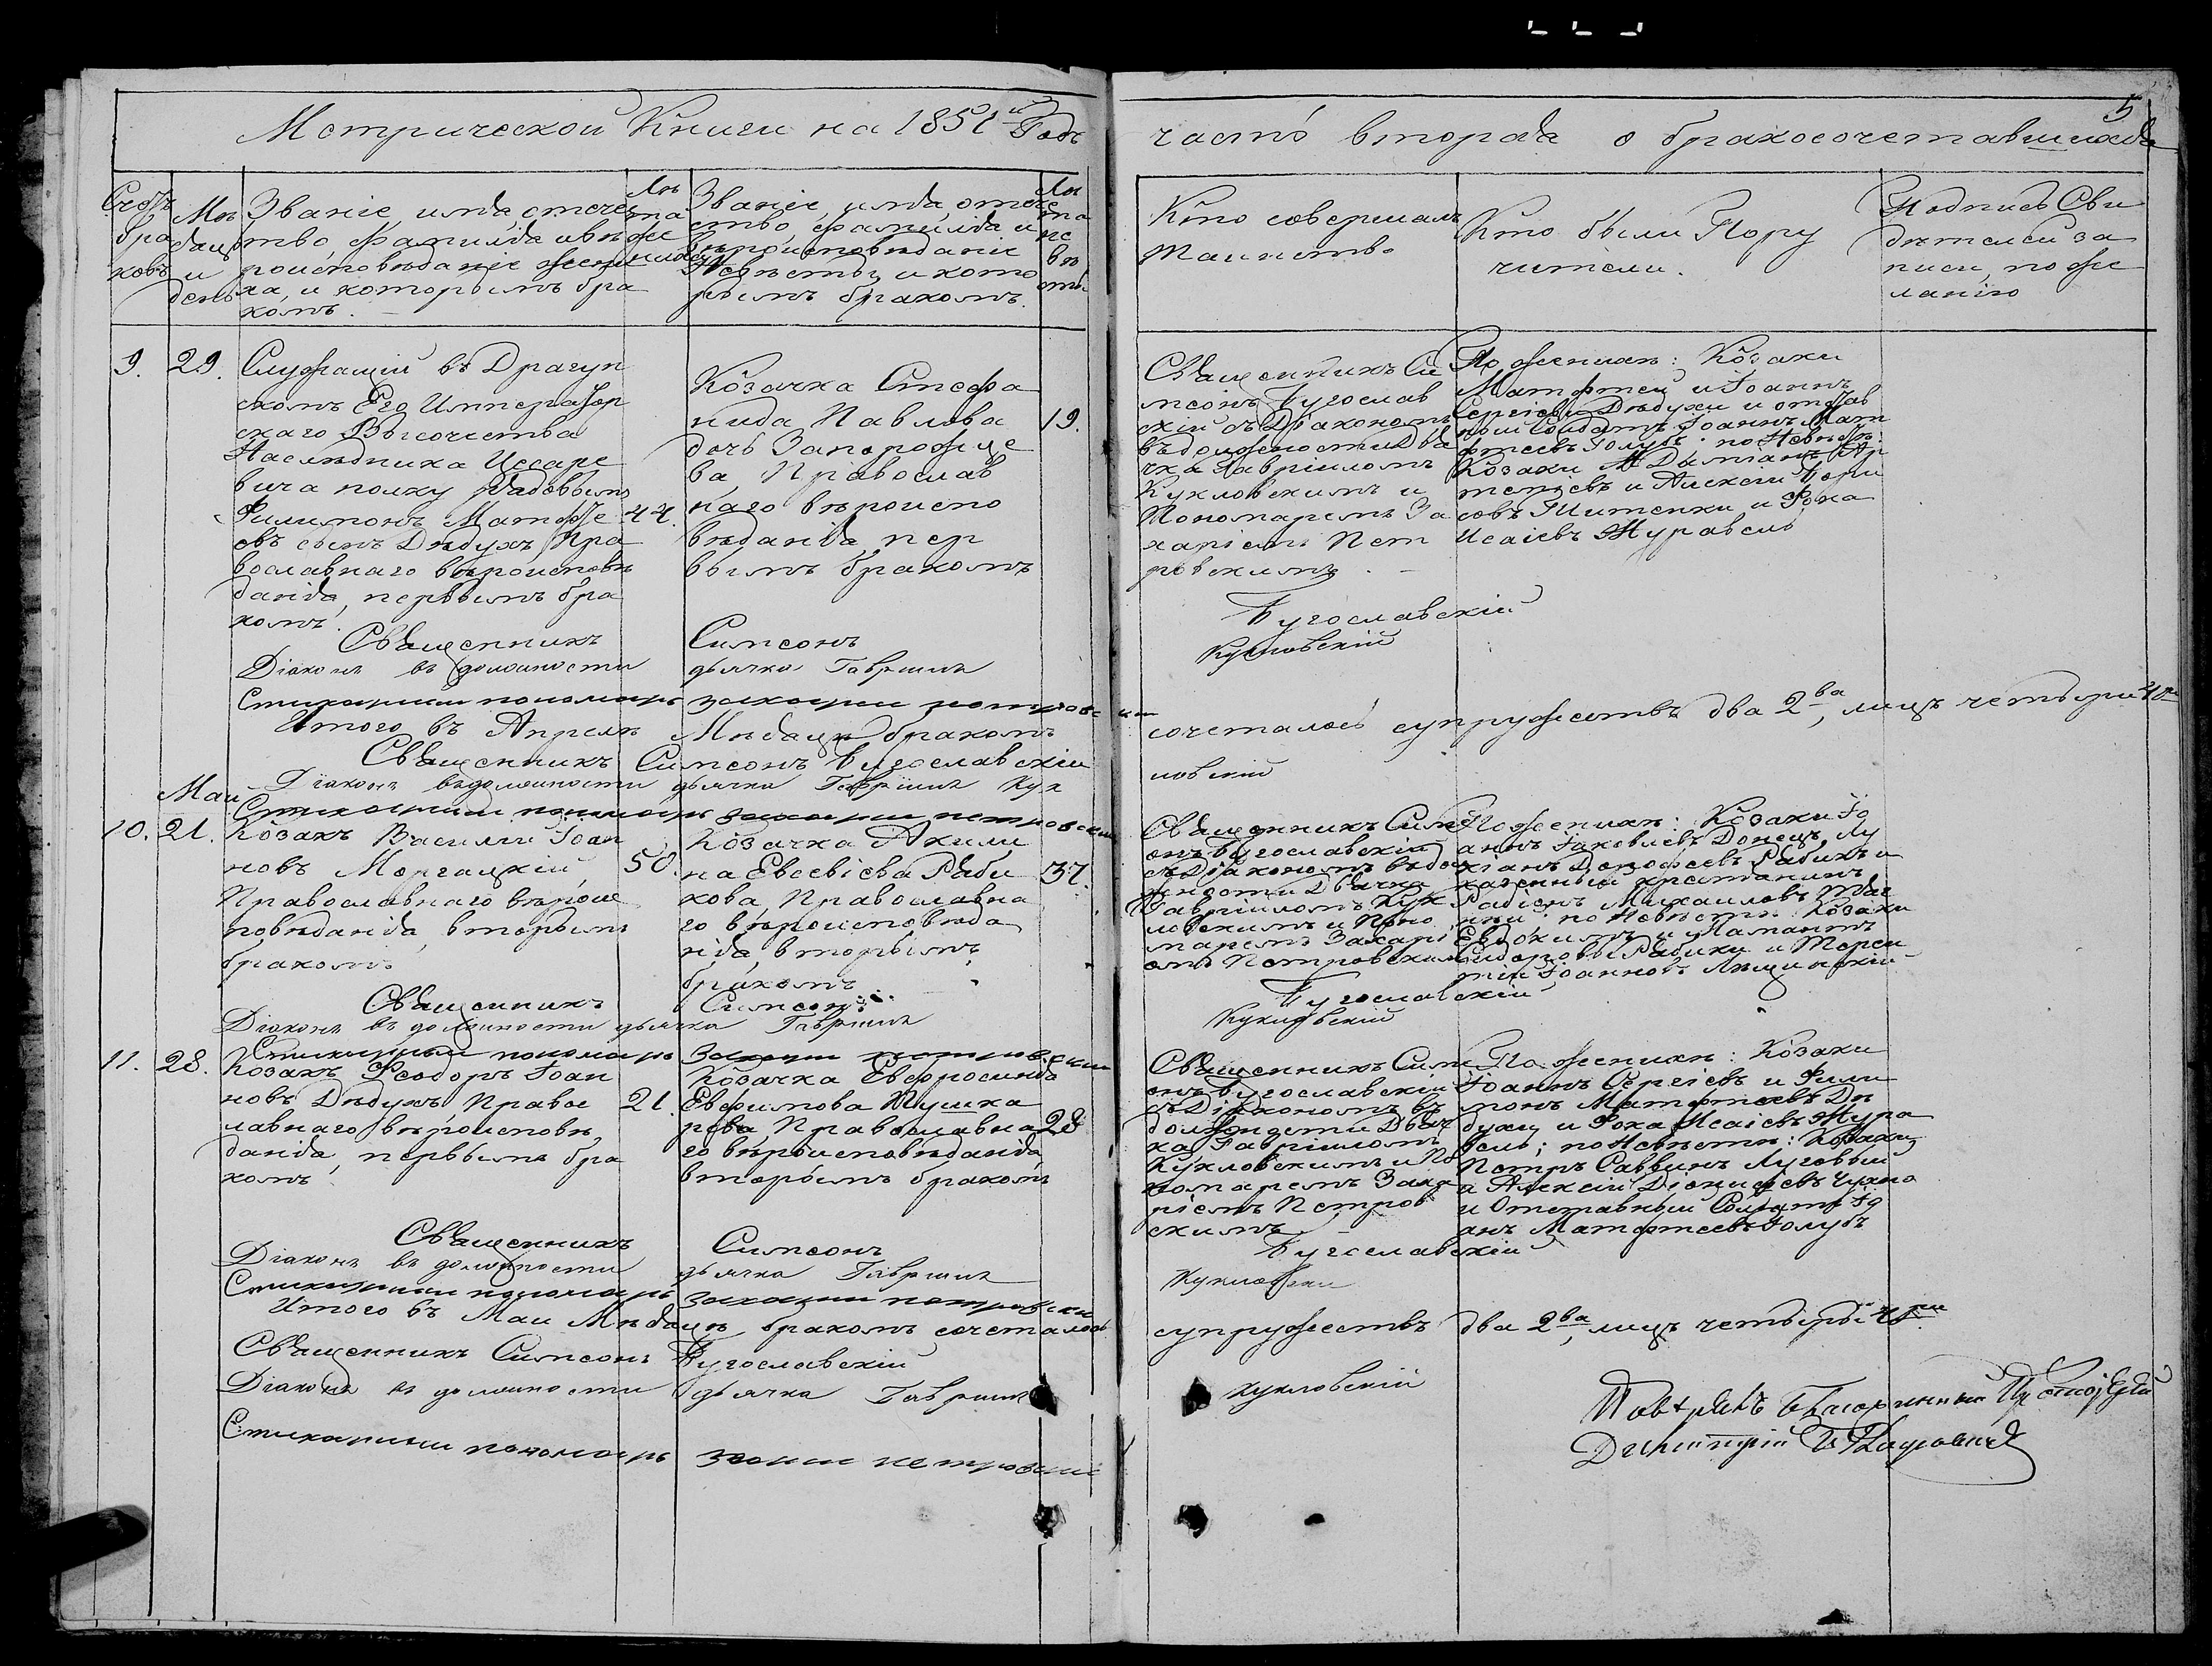 Метрической Книги на 1851й Годъ
часть вторая о бракосочетавшихся
5
Счетъ браковъ
Мѣсяцъ и день
Званіе, имя, отечество, фамилія и вѣроисповѣданіе жениха, и которымъ бракомъ.
Лѣта жениха
Званіе, имя, отечество, фамилія и вѣроисповѣданіе Невѣсты, и которымъ бракомъ.
Лѣта невѣсты
Кто совершалъ
Таинство
Кто были Пору
чители.
Подпись Сви
дѣтелей за
писи, по же
ланію
9.
29.
Служащій въ Драгун
скомъ Его Император
скаго Высочества
Наслѣдника Цесаре
вича полку Рядовымъ
Филимонъ Матѳѣе
въ сынъ Дѣдухъ Пра
вославнаго вѣроисповѣ
данія, первымъ бра
комъ.
44.
Козачка Стефа
нида Павлова
дочь Запорожце
ва, Православ
наго вѣроиспо
вѣданія, пер
вымъ бракомъ
19.
Священникъ Си
меонъ Бугослав
скій съ Діакономъ
въ должности Дья
чка Гавріиломъ
Кукловскимъ и
Пономаремъ За
харіемъ Пет
ровскимъ. –
По женихѣ: Козаки
Матфтей и Іоаннъ
Сергіевы Дѣдухи и отстав
ной Солдатъ Іоаннъ Мат
фтеевъ Голубъ; по Невѣстѣ:
Козаки Даміанъ Ар
теміевъ и Алексій Бори
совъ Шитенки и Фока
Исаіевъ Журавель
Священникъ Симеонъ Бугославскій
Діаконъ въ должности дьячка Гавріилъ Кукловскій
Стихарный пономарь Захарій Петровскій
Итого въ Апрелѣ Мѣсяцѣ бракомъ сочеталось супружествъ два 2ва, лицъ четыри 4ри
Священникъ Симеонъ Бугославскій
Діаконъ въ должности дьячка Гавріилъ Кукловскій
Стихарный пономарь Захарій Петровскій
Маи
10.
21.
Козакъ Василій Іоан
новъ Моргацкій,
Православнаго вѣроис
повѣданія, вторымъ
бракомъ.
50.
Козачка Акили
на Евсевіева Ряби
кова, Православна
го вѣроисповѣда
нія, вторымъ
бракомъ
37.
Священникъ Симе
онъ Бугославскій
съ Діакономъ въ дол
жности Дьячка
Гавріиломъ Кук
ловскимъ и Поно
маремъ Захарі
емъ Петровскимъ
По женихѣ: Козаки Іо
аннъ Іаковлевъ Донецъ, Лу
кіанъ Дорофеевъ Рябикъ и
казенный крестьянинъ
Радіонъ Михаиловъ
по Невѣстѣ: Козаки
Евдокимъ и Мамантъ
Сидоровы Рябики и Терен
тій Іоанновъ Лещинскій
Священникъ Симеонъ Бугославскій
Діаконъ въ должности дьячка Гавріилъ Кукловскій
Стихарный пономарь Захарій Петровскій
11.
28.
Козакъ Ѳеодоръ Іоан
новъ Дѣдухъ, Правос
лавнаго вѣроисповѣ
данія, первымъ бра
комъ.
21.
Козачка Евфросинія
Евфимова Кушка
рева, Православна
го вѣроисповѣданія,
вторымъ бракомъ
28
Священникъ Симе
онъ Бугославскій
съ Діакономъ въ
должности Дьяч
ка Гавріиломъ
Кукловскимъ и По
номаремъ Заха
ріемъ Петров
скимъ –
По женихѣ: Козаки
Іоаннъ Сергіевъ и Фили
монъ Матфтеевъ Дѣ
духи и Фока Исаіевъ Жура
вель; по Невѣстѣ: Козаки
Петръ Саввинъ Луговый
и Алексій Діонисіевъ
и Отставный Солдатъ Іо
анъ Матфтеевъ Голубъ
Священникъ Симеонъ Бугославскій
Діаконъ въ должности дьячка Гавріилъ Кукловскій
Стихарный пономарь Захарій Петровскій
Итого въ Маи Мѣсяцѣ бракомъ сочеталось супружествъ два 2ва, лицъ четыры 4ри
Священникъ Симеонъ Бугославскій
Діаконъ въ должности дьячка Гавріилъ Кукловскій
Стихарный пономарь Захарій Петровскій
Повѣрялъ Благочинный Протоіерей
Димитрій